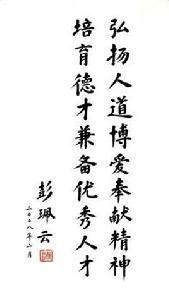 弘扬人道博爱奉献精神
培育德才兼备优秀人才
彭珮云
二〇〇八年二月